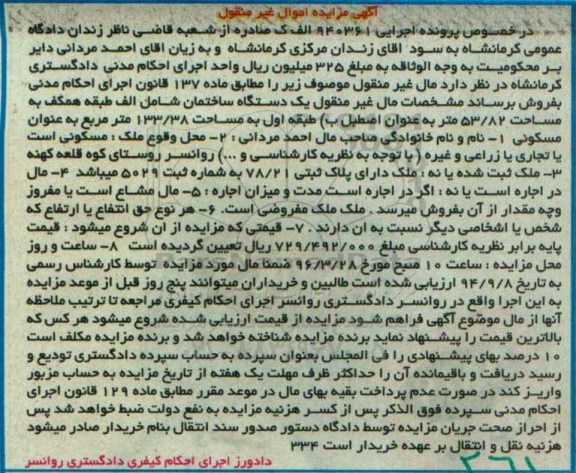 آگهی مزایده اموال غیر منقول
در خصوص پرونده اجرایی ۹۴۰۳۶۱ الف ک صادره از شعبه قاضی ناظر زندان دادگاه
عمومی کرمانشاه به سود اقای زندان مرکزی کرمانشاه و به زیان اقای احمد مردانی دایر
بر محکومیت به وجه الوثاقه به مبلغ ۳۲۵ میلیون ریال واحد اجرای احکام مدنی دادگستری
کرمانشاه در نظر دارد مال غیر منقول موصوف زیر را مطابق ماده ۱۳۷ قانون اجرای احکام مدنی
بفروش برساند مشخصات مال غیر منقول یک دستگاه ساختمان شامل الف طبقه همکف به
مساحت ۵۳/۸۲ متر به عنوان اصطبل ب) طبقه اول به مساحت ۱۳۳/۳۸ متر مربع به عنوان
مسکونی ۱- نام و نام خانوادگی صاحب مال احمد مردانی : ۲- محل وقوع ملک : مسکونی است
یا تجاری یا زراعی و غیره ( با توجه به نظریه کارشناسی و ...) روانسر روستای کوه قلعه کهنه
۳- ملک ثبت شده یا نه : ملک دارای پلاک ثبتی ۷۸/۲۱ به شماره ثبت ۵۰۲۹ میباشد ۴- مال
در اجاره است یا نه : اگر در اجاره است مدت و میزان اجاره : ۵- مال مشاع است یا مفروز
وچه مقدار از آن بفروش میرسد . ملک ملک مفروضی است. ۶- هر نوع حق انتفاع یا ارتفاع که
شخص یا اشخاصی دیگر نسبت به ان دارند . ۷- قیمتی که مزایده از ان شروع میشود : قیمت
پایه برابر نظریه کارشناسی مبلغ ۷۲۹/۴۹۲/۰۰۰ ریال تعیین گردیده است ۸- ساعت و روز
محل مزایده : ساعت ۱۰ صبح مورخ ۹۶/۳/۲۸ ضمنا مال مورد مزایده توسط کارشناس رسمی
به تاریخ ۹۴/۹/۸ ارزیابی شده است طالبین و خریداران میتوانند پنج روز قبل از موعد مزایده
به این اجرا واقع در روانسر دادگستری روانسر اجرای احکام کیفری مراجعه تا ترتیب ملاحظه
آنها از مال موضوع آگهی فراهم شود مزایده از قیمت ارزیابی شده شروع میشود هر کس که
بالاترین قیمت را پیشنهاد نماید برنده مزایده شناخته خواهد شد و برنده مزایده مکلف است
۱۰ درصد بهای پیشنهادی را فی المجلس بعنوان سپرده به حساب سپرده دادگستری تودیع و
رسید دریافت و باقیمانده آن را حداکثر ظرف مهلت یک هفته از تاریخ مزایده به حساب مزبور
واریز کند در صورت عدم پرداخت بقیه بهای مال در موعد مقرر مطابق ماده ۱۲۹ قانون اجرای
احکام مدنی سپرده فوق الذکر پس از کسر هزینه مزایده به نفع دولت ضبط خواهد شد پس
از احراز صحت جریان مزایده توسط دادگاه دستور صدور سند انتقال بنام خریدار صادر میشود
هزینه نقل و انتقال بر عهده خریدار است ۳۳۴
دادورز اجرای احکام کیفری دادگستری روانسر